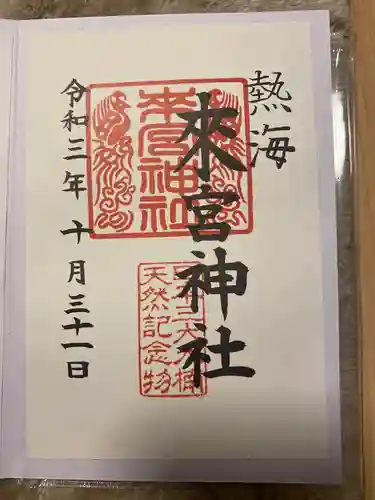 熱海
來宮神社
令和三年十月三十一日
來宮神社
天然記念物